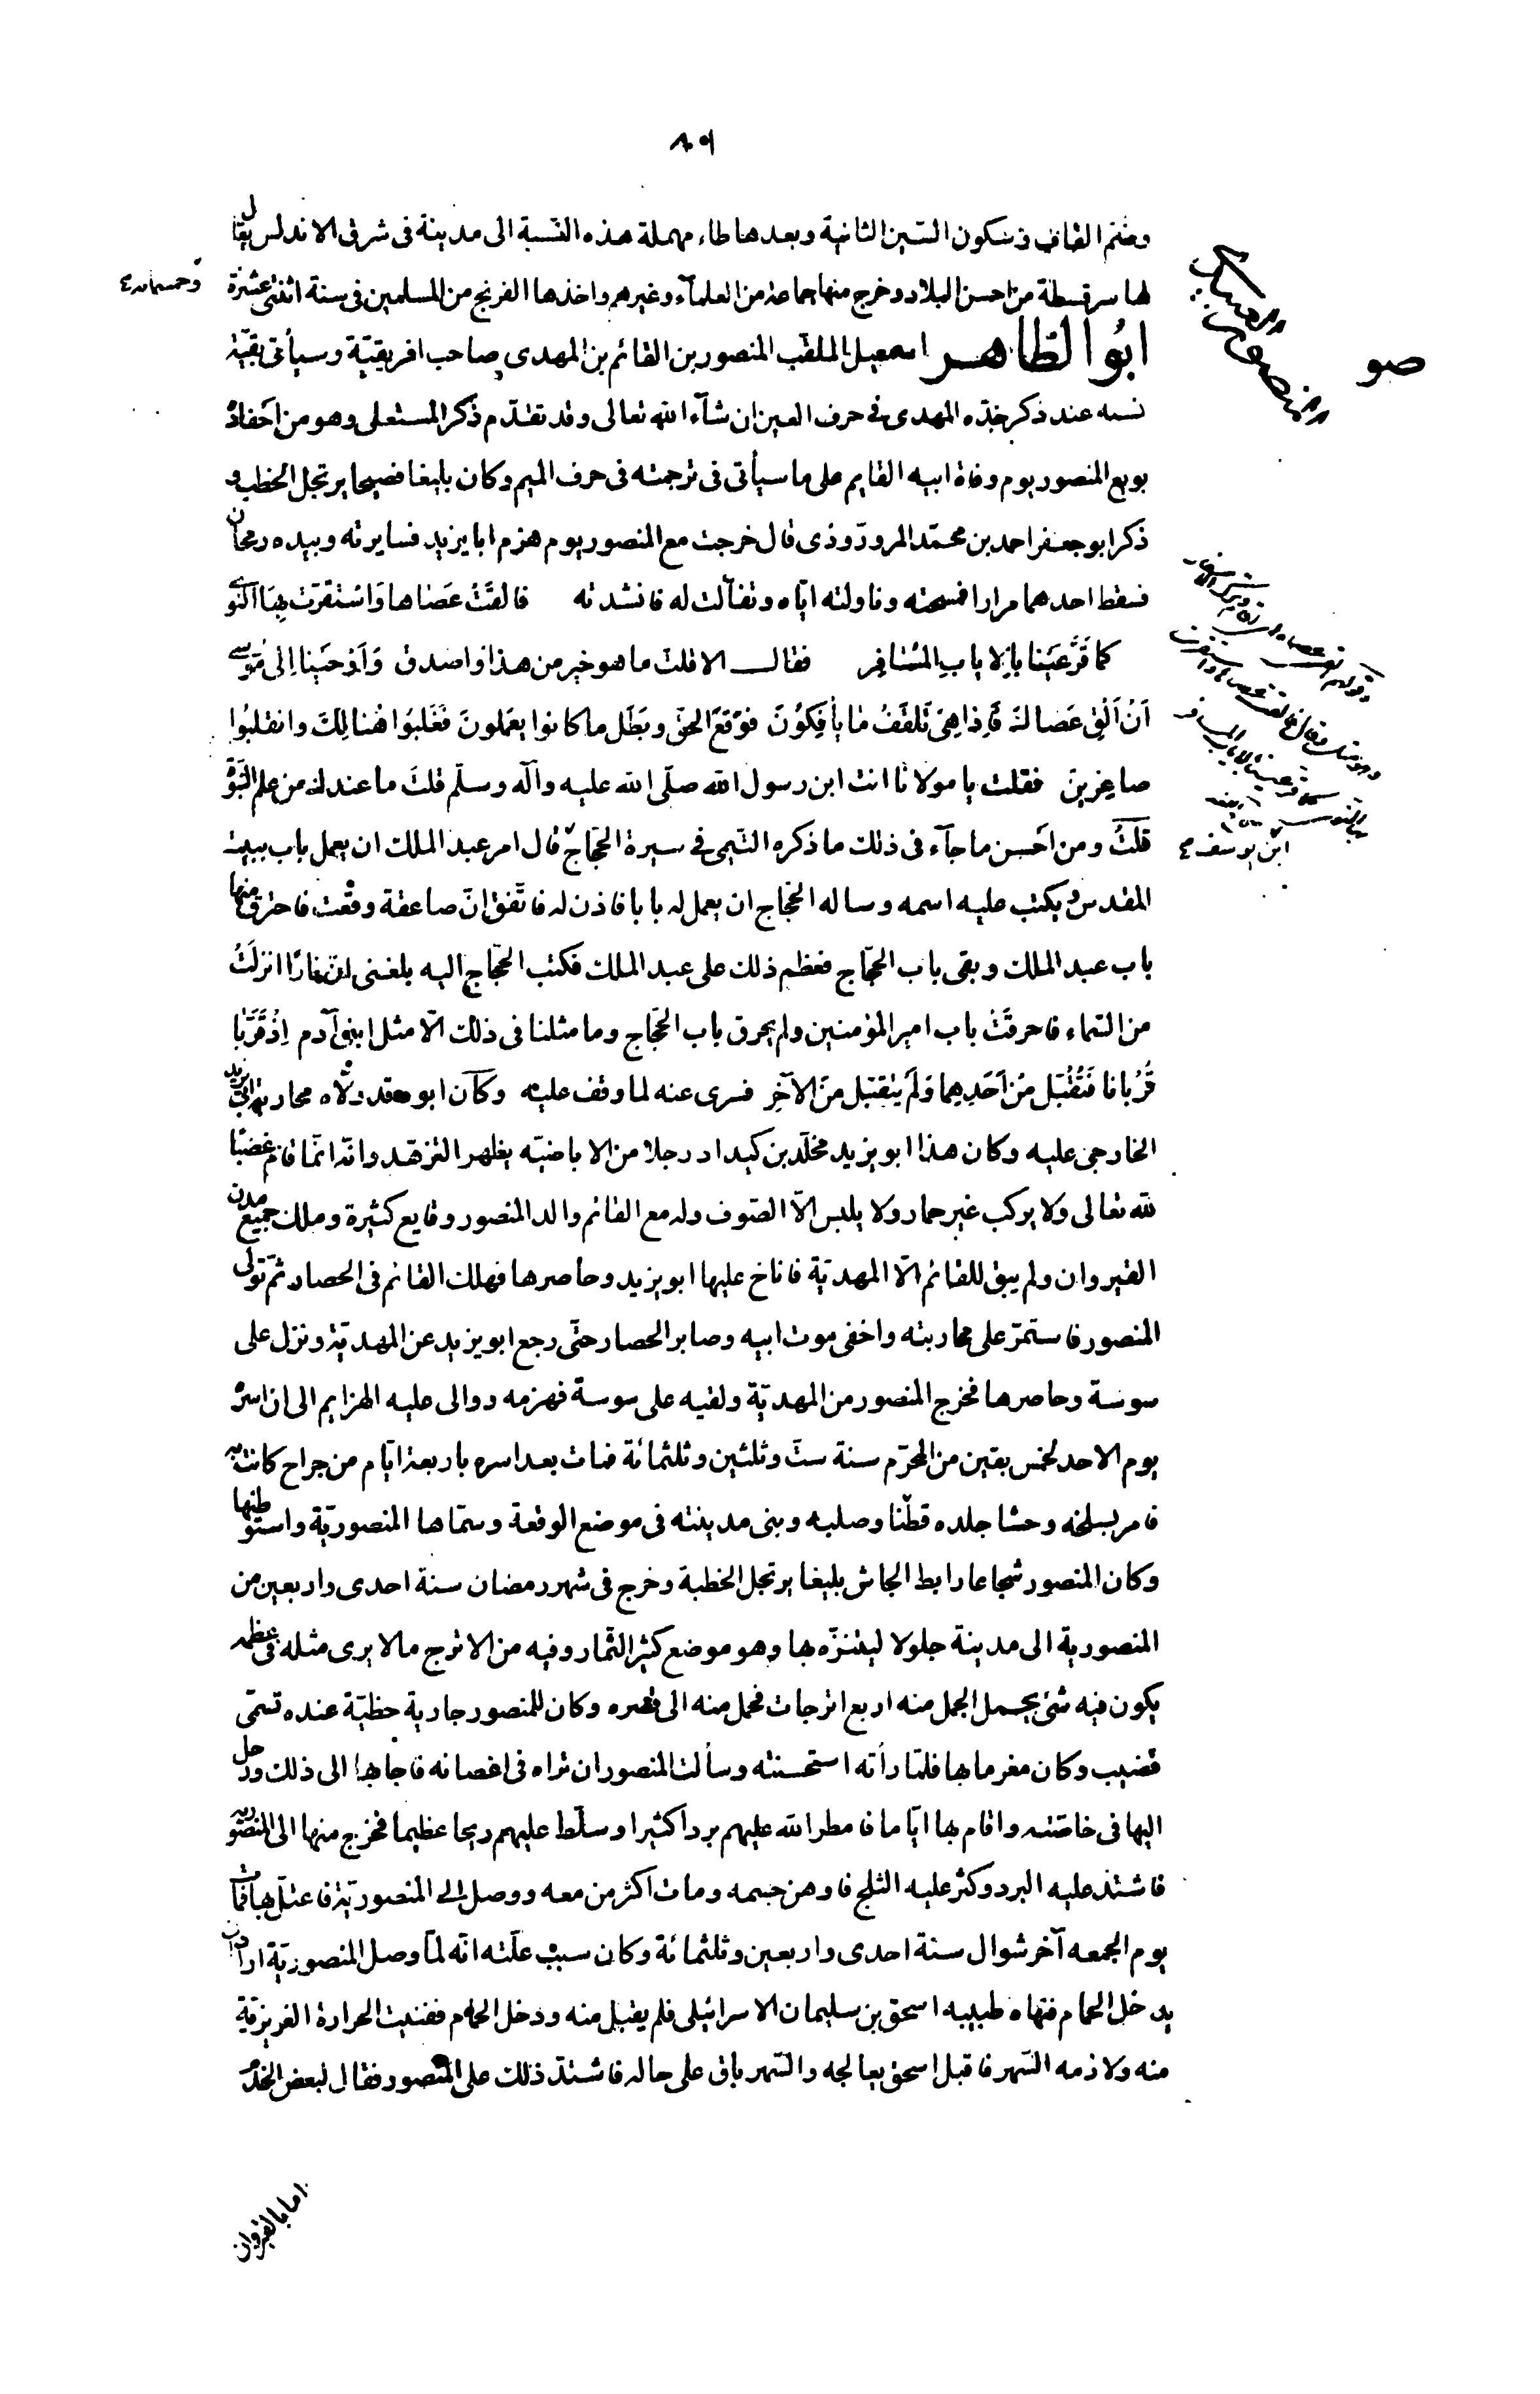 وضم القاف وسكون السين الثانية وبعدها طاء مهملة هذه النسبة الى مدينة فى شرقى الاندلس يقال
لها سرقسطة من احسن البلاد وخرج منها جماعة من العلمآء وغيرهم واخذها الفرنج من المسلمين فى سنة اثنتى عشرة
وخمسمائة
ابُو الطّاهر اسمعيل الملقّب المنصور بن القائم بن المهدى صاحب افريقيّة وسيأتى بقيّة
نسبه عند ذكر جدّه المهدى فى حرف العين ان شآء الله تعالى وقد تقدّم ذكر المستعلى وهو من احفاده
بويع المنصور يوم وفاة ابيه القايم على ما سيأتى فى ترجمته فى حرف الميم وكان بليغا فصيحا يرتجل الخطب و
ذكر ابو جعفر احمد بن محمّد المرورّوذى قال خرجت مع المنصور يوم هزم ابا يزيد فسايرته وبيده رمحان
فسقط احدهما مرارا فمسحته وناولته ايّاه وتفآلت له فانشدته فالقَتْ عَصَاها وَاسْتَقرّت بِهَا النَّوى
كما قَرَّ عَيْنا بِالإيابِ المُسَافِر فقال الا قلتَ ما هو خير من هذا واصدق وَاَوْحَيْنا اِلى مُوسى
اَنْ اَلْقِ عَصَاكَ فَاِذا هِىَ تَلقَفُ مَا يأفِكُونَ فوَقَعَ الحَقّ وبَطَل ما كانوا يعَملونَ فَغُلبُوا هُنالِكَ وانقلبُوا
صاغِرينَ فقلت يا مولانا انت ابن رسول الله صلّى الله عليه وآله وسلّم قلتَ ما عندك من علم النبوّة
قلتُ ومن احَسن ما جآء فى ذلك ما ذكره التيمى فى سيرة الحجّاج قال امر عبد الملك ان يعمل باب ببيت
المقدس ويكتب عليه اسمه وساله الحجّاج ان يعمل له بابا فاذن له فاتّفق انّ صاعقة وقعت فاحترق منها
باب عبد الملك وبقى باب الحجّاج فعظم ذلك على عبد الملك فكتب الحجّاج اليه بلغنى انّ نارًا انزلَتْ
من السّماء فاحرقَتْ باب امير المؤمنين ولم يحرق باب الحجّاج وما مثلنا فى ذلك الّا مثل ابنى آدم اِذْ قَرَّبَا
قُرْبانا فَتُقُبّل مِنْ اَحَدِهِما وَلَم يُتقبّل مِنَ الآخَرِ فسرى عنه لما وقف عليه وكان ابوه قد ولّاه محاربة ابى يزيد
الخارجى عليه وكان هذا ابو يزيد مخلّد بن كيداد رجلا من الاباضيّه يظهر التزهّد وانّه انّما قام غضبًا
لله تعالى ولا يركب غير حمار ولا يلبس الّا الصّوف وله مع القائم والد المنصور وقايع كثيرة وملك جميع مدن
القيروان ولم يبق للقائم الّا المهديّة فاناخ عليها ابو يزيد وحاصرها فهلك القائم فى الحصار ثمّ تولّى
المنصور فاستمرّ على محاربته واخفى موت ابيه وصابر الحصار حتّى رجع ابو يزيد عن المهديّة ونزل على
سوسة وحاصرها فخرج المنصور من المهديّة ولقيه على سوسة فهزمه ووالى عليه الهزايم الى ان اسره
يوم الاحد لخمس بقين من المحرّم سنة ستّ وثلثين وثلثمائة فمات بعد اسره باربعة ايّام من جراح كانت به
فامر بسلخه وحشا جلده قطنا وصلبه وبنى مدينته فى موضع الوقعة وسمّاها المنصوريّة واستوطنها
وكان المنصور شجاعا رابط الجاش بليغا يرتجل الخطبة وخرج فى شهر رمضان سنة احدى واربعين من
المنصورية الى مدينة جلولا ليتنزّه بها وهو موضع كثير الثمار وفيه من الاترج ما لا يرى مثله فى عظمه
يكون فيه شئ يحمل الجمل منه اربع اترجات فحمل منه الى قصره وكان للمنصور جارية حظيّة عنده تسمّى
قضيب وكان مغرما بها فلمّا رأته استحسنته وسألت المنصور ان تراه فى اغصانه فاجابها الى ذلك ورحل
اليها فى خاصّته واقام بها ايّاما فامطر الله عليهم بردا كثيرا وسلّط عليهم ريحا عظيما فخرج منها الى المنصوريه
فاشتدّ عليه البرد وكثر عليه الثلج فاوهن جسمه ومات اكثر من معه ووصل الى المنصوريّة فاعتلّ بها فمات
يوم الجمعه آخر شوال سنة احدى واربعين وثلثمائة وكان سبب علّته انّه لمّا وصل المنصوريّة اراد ان
يدخل الحمام فنهاه طبيبه اسحق بن سليمان الاسرائيلى فلم يقبل منه ودخل الحمام ففنيت الحرارة الغريزيّة
منه ولازمه السّهر فاقبل اسحق يعالجه والسّهر باق على حاله فاشتدّ ذلك على المنصور فقال لبعض الخدم
اما بالقيروان